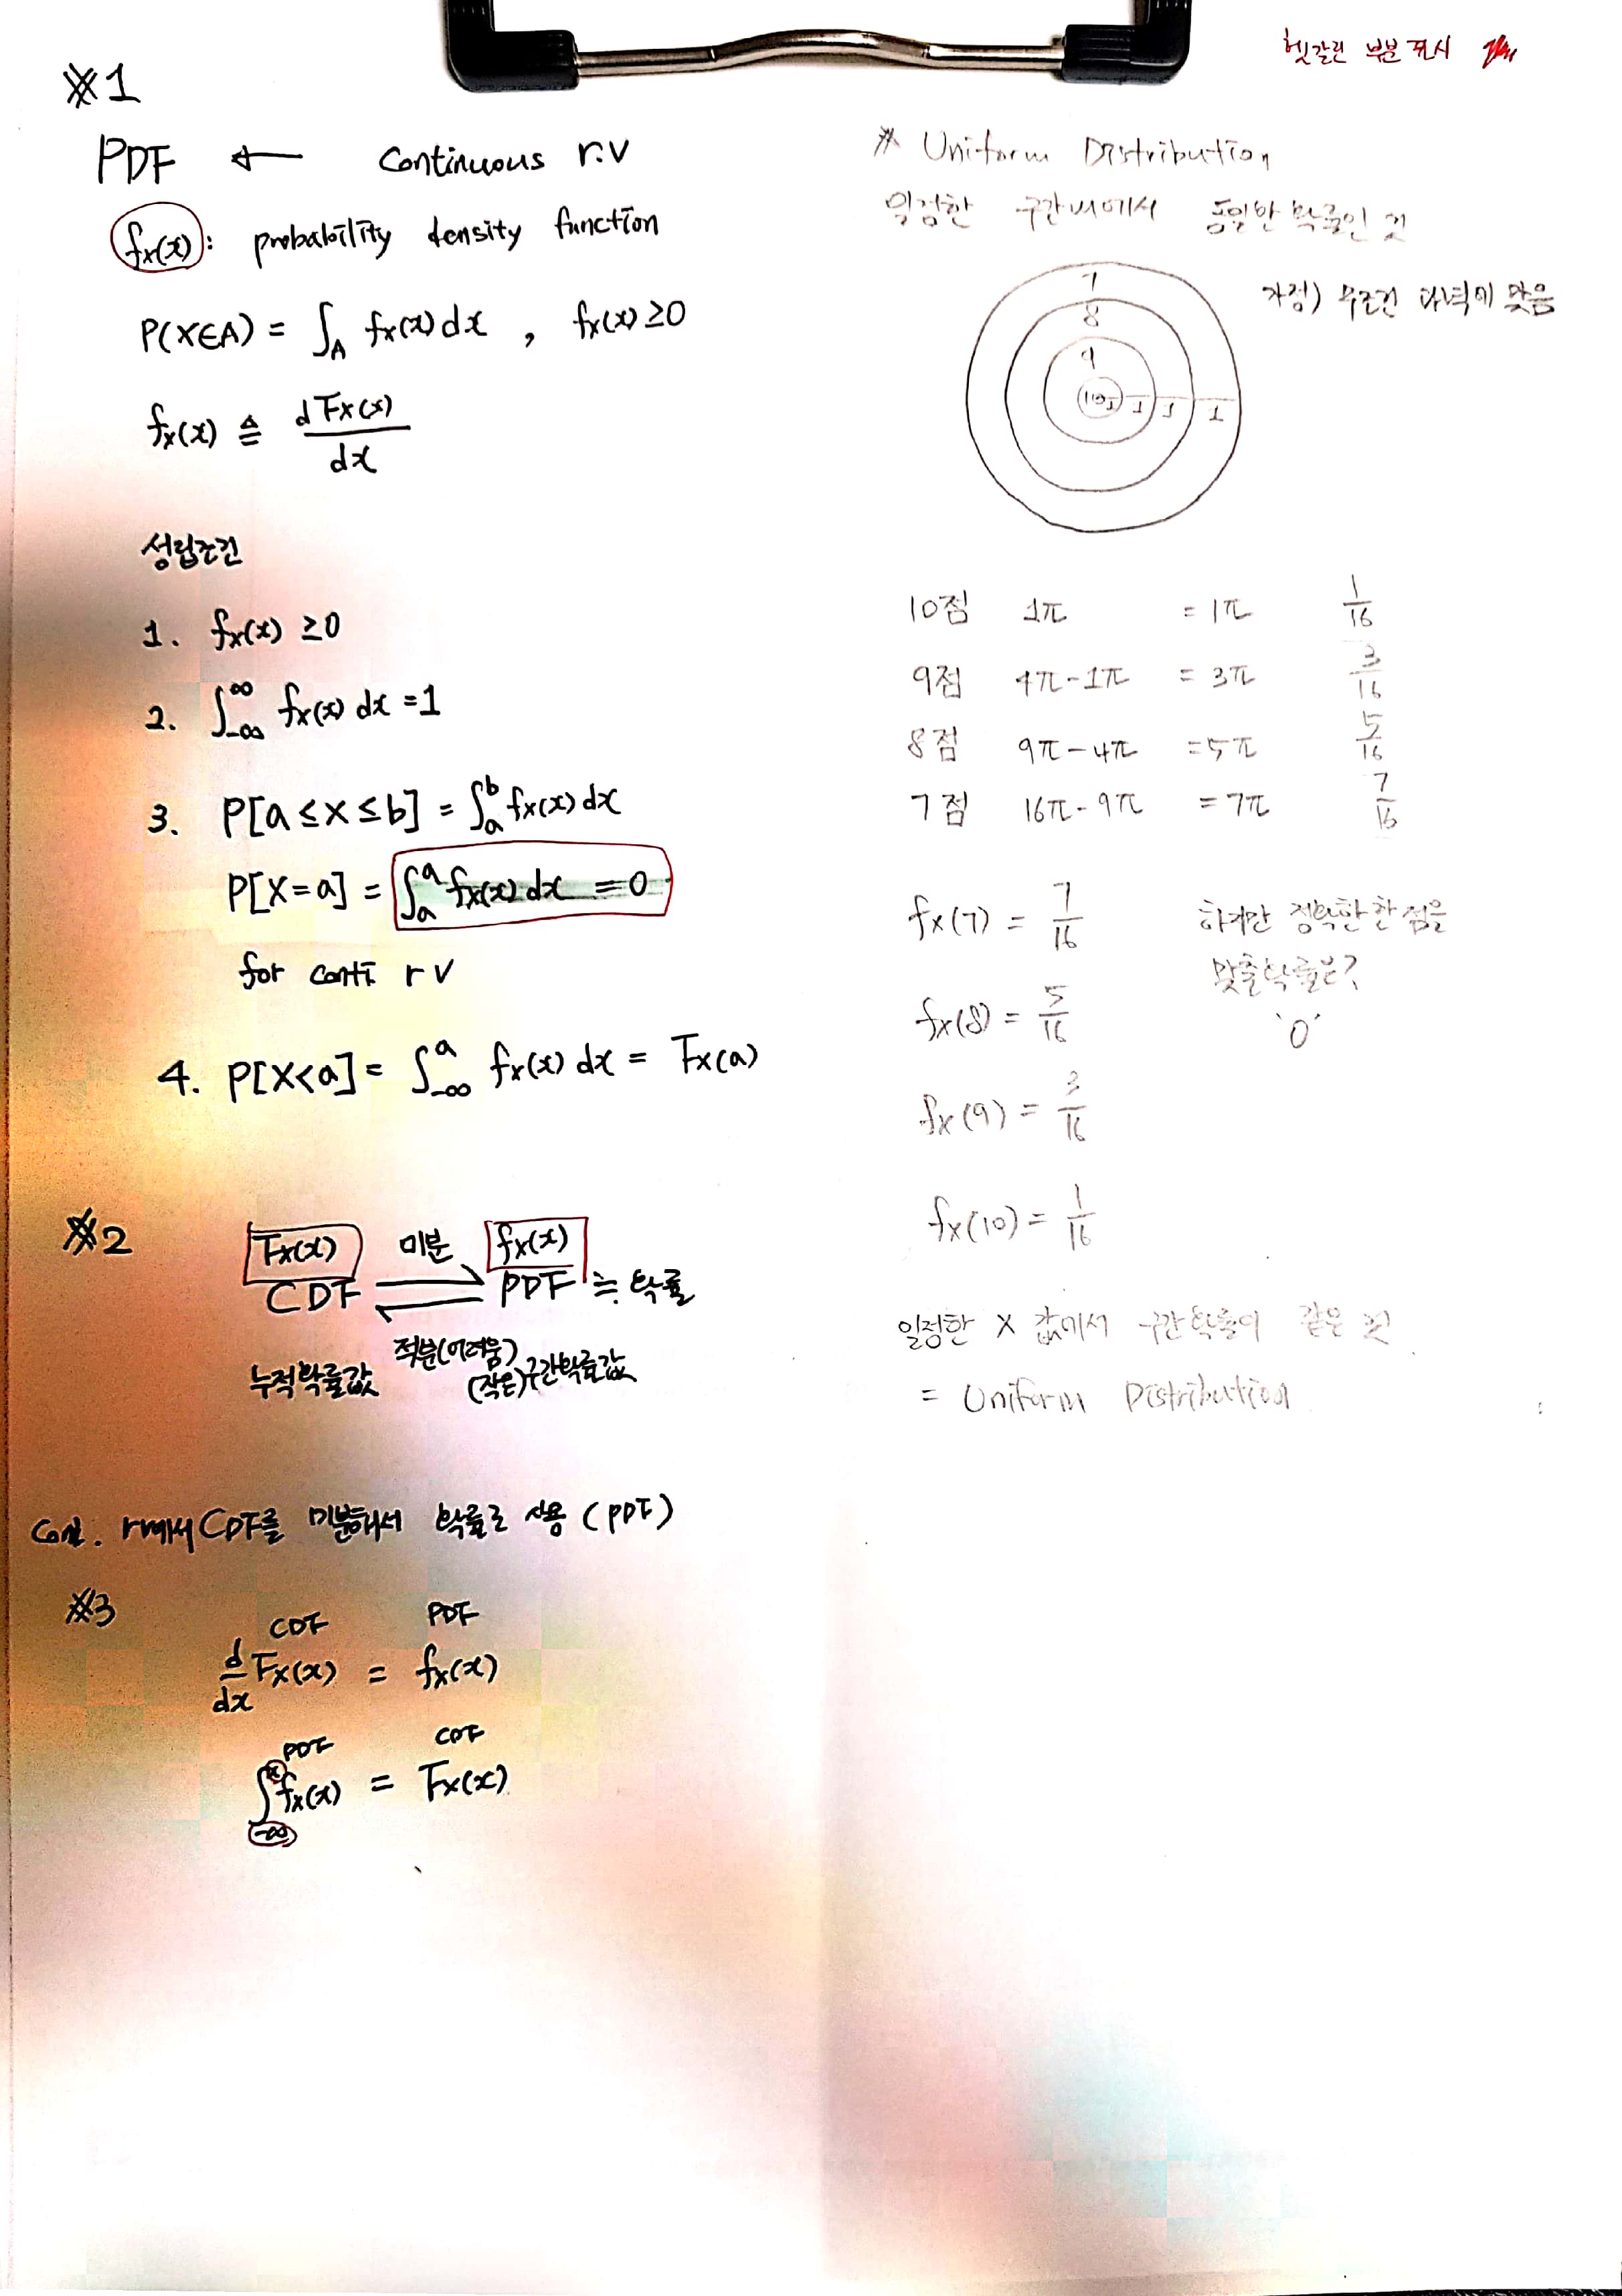 헷갈린 부분 표시
※1
PDF ← Continuous r.v
fx(x): probability density function
P(X∈A) = ∫_A fx(x) dx , fx(x) ≥0
fx(x) ≜ dFx(x)/dx
성립조건
1. fx(x) ≥0
2. ∫_-∞^∞ fx(x) dx =1
3. P[a≤x≤b] = ∫_a^b fx(x) dx
P[X=a] = ∫_a^a fx(x) dx =0
for conti r v
4. P[X<a] = ∫_-∞^a fx(x) dx = Fx(a)
※2
Fx(x) 미분 fx(x)
CDF ⇌ PDF ≒ 확률
적분(어려움)
누적확률값 (작은)구간확률값
rv에서 CDF를 미분해서 확률로 사용 (PDF)
※3
CDF PDF
d/dx Fx(x) = fx(x)
PDF CDF
∫_-∞^x fx(x) = Fx(x)
※ Uniform Distribution
일정한 구간내에서 동일한 확률인 것
가정) 무조건 과녁에 맞음
7
8
9
10 1 1 1 1
10점 1π = 1π 1/16
9점 4π-1π = 3π 3/16
8점 9π-4π =5π 5/16
7점 16π-9π = 7π 7/16
fx(7) = 7/16
하지만 정확한 한 점을
맞출확률은?
'0'
fx(8) = 5/16
fx(9) = 3/16
fx(10) = 1/16
일정한 X 값에서 구간확률이 같은 것
= Uniform Distribution